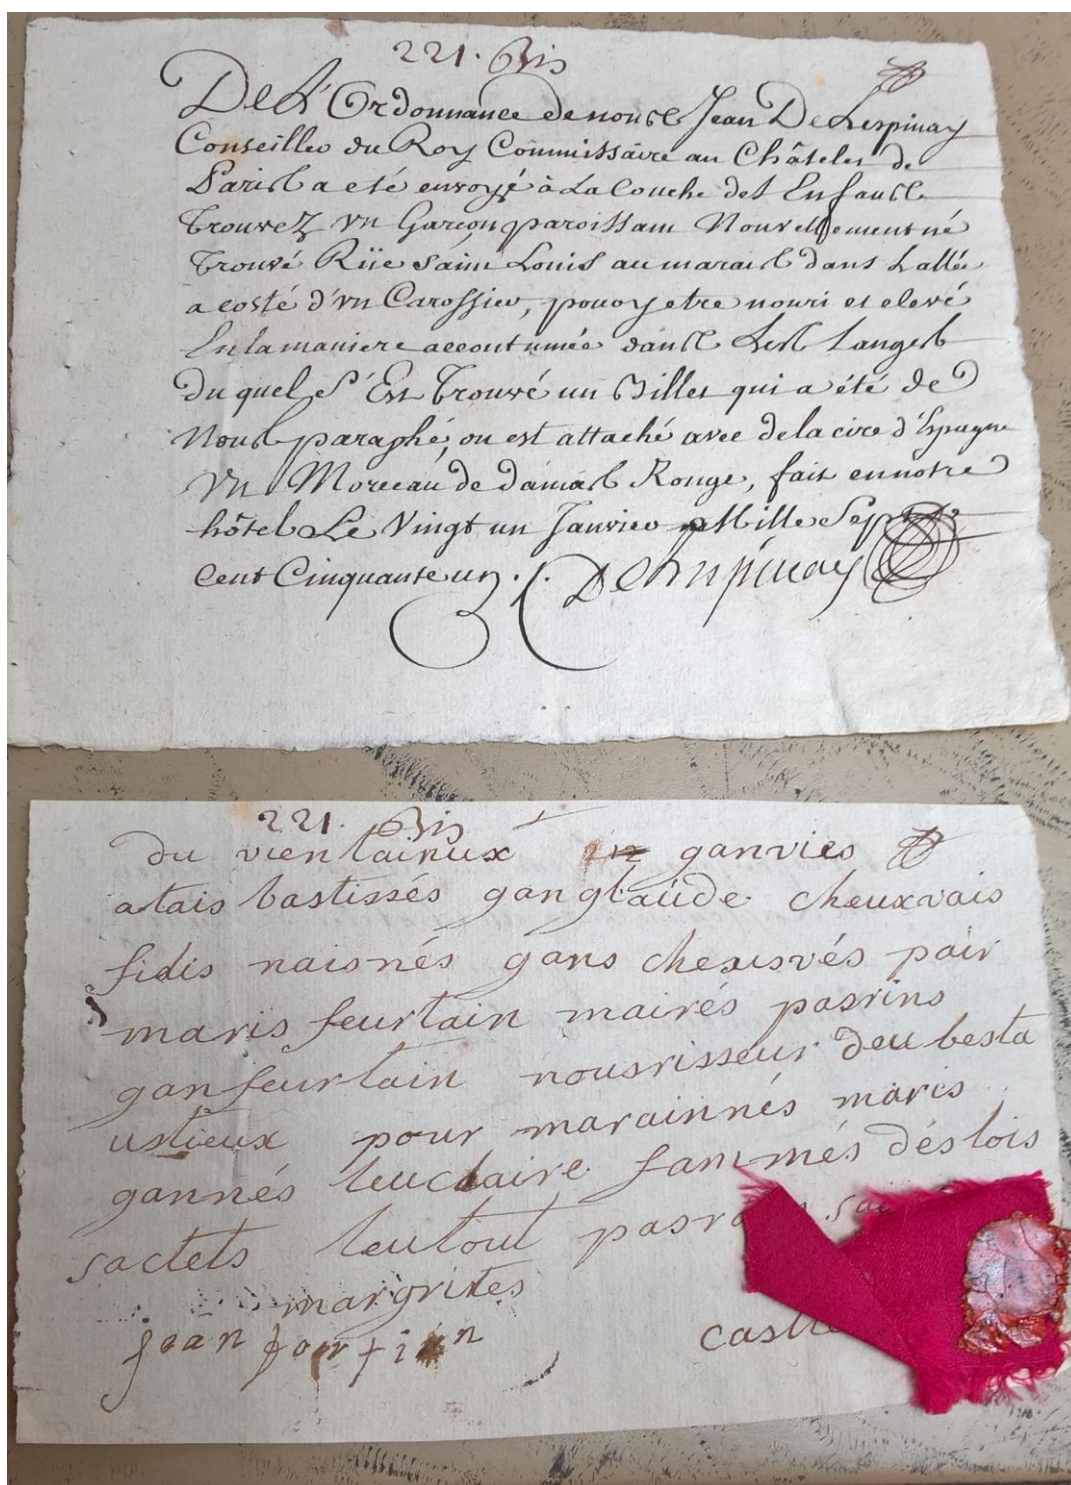 221. Bis
De L'Ordonnance de nous Jean De Lespinay
Conseiller du Roy Commissaire au Châtelet de
Paris a eté envoyé à La Couche des Enfans
Trouvez un Garçon paroissant Nouvellement né
Trouvé Rüe Saint Louis au marais dans Lallée
a costé d'un Carossier, pour y etre nouri et elevé
En la maniere accoutumée dans Les Langes
du quel S'Est Trouvé un Billet qui a été de
Nous paraphé, ou est attaché avec de la cire d'Espagne
Un Morceau de damas Rouge, fait en notre
hôtel Le Vingt un Janvier Mille Sept
Cent Cinquante un. Delespinay
221. Bis
du vientainux ganvies
atais bastissés ganglaude cheuxvais
fidis naisnés gans cheusvés pair
maris feurtain mairés pasrins
ganfeurtain nousrisseur deu besta
ustieux pour marainnés maris
gannés leuclaire fammés déslois
sactets leutout pasra
margrites
jean fortin